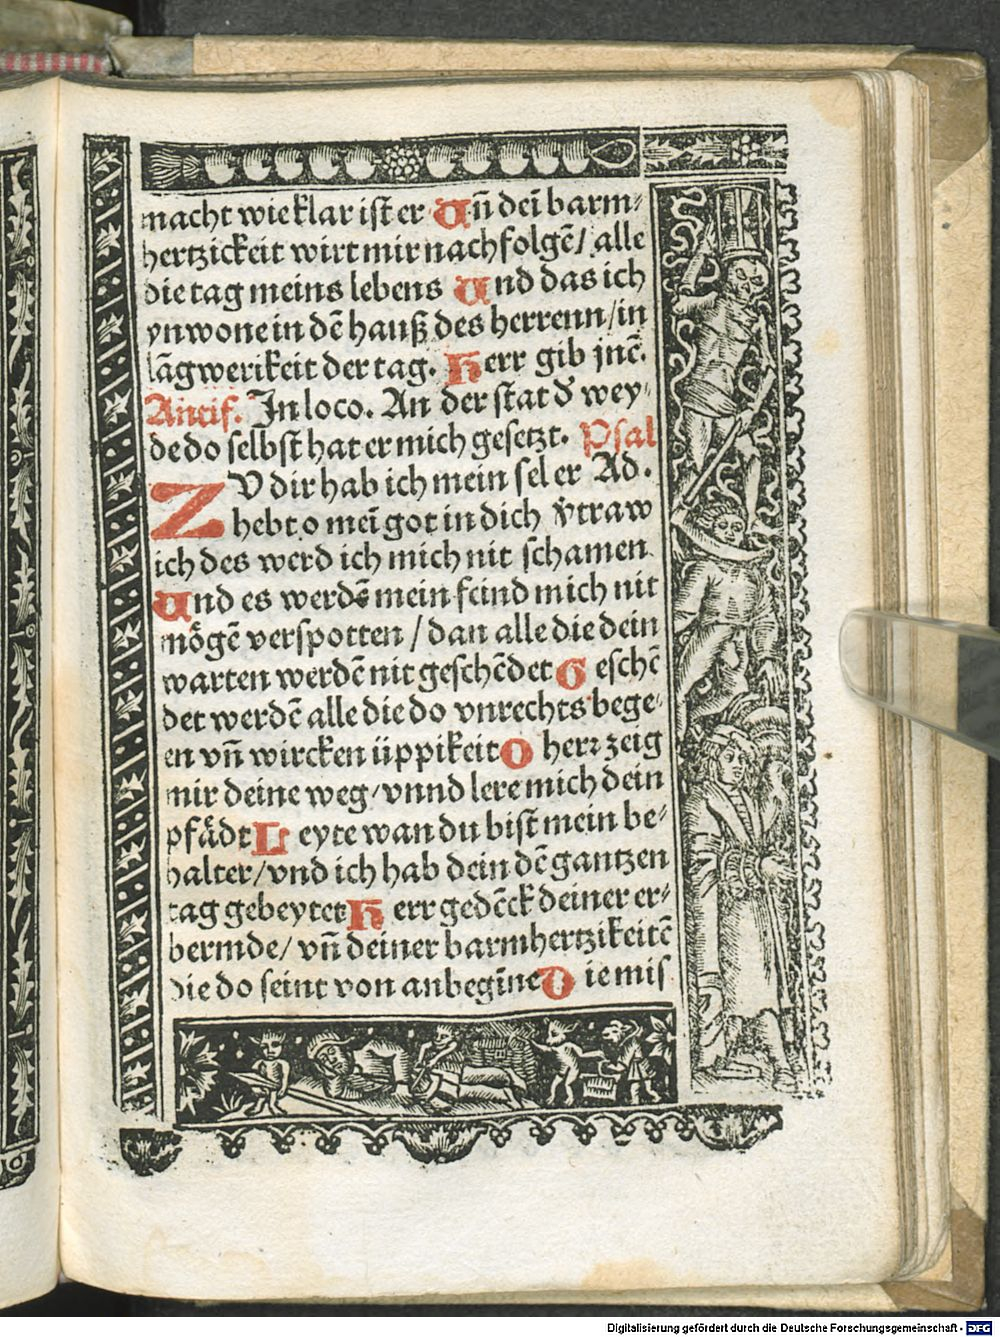 macht wie klar ist er Uñ dei̅ barm⸗
hertzickeit wirt mir nachfolgē/ alle
die tag meins lebens Und das ich
ynwone in dē hauß des herrenn/in
lāgwerikeit der tag. Herr gib jnē.
Antif. In loco. An der stat đ wey⸗
de do selbst hat er mich gesetzt. Psal
ZV dir hab ich mein sel er Ad.
hebt o mei̅ got in dich v̄traw
ich des werd ich mich nit schamen
Und es werdē mein feind mich nit
mögē verspotten / dan alle die dein
warten werdē nit geschēdet Geschē
det werdē alle die do vnrechts bege⸗
en vñ wircken üppikeit O herꝛ zeig
mir deine weg/vnnd lere mich dein
pfädt Leyte wan du bist mein be⸗
halter/vnd ich hab dein dē gantzen
tag gebeytet Herr gedēck deiner er⸗
bermde/ vñ deiner barmhertzikeitē
die do seint von anbegi̅ne Die mis
Digitalisierung gefördert durch die Deutsche Forschungsgemeinschaft - DFG